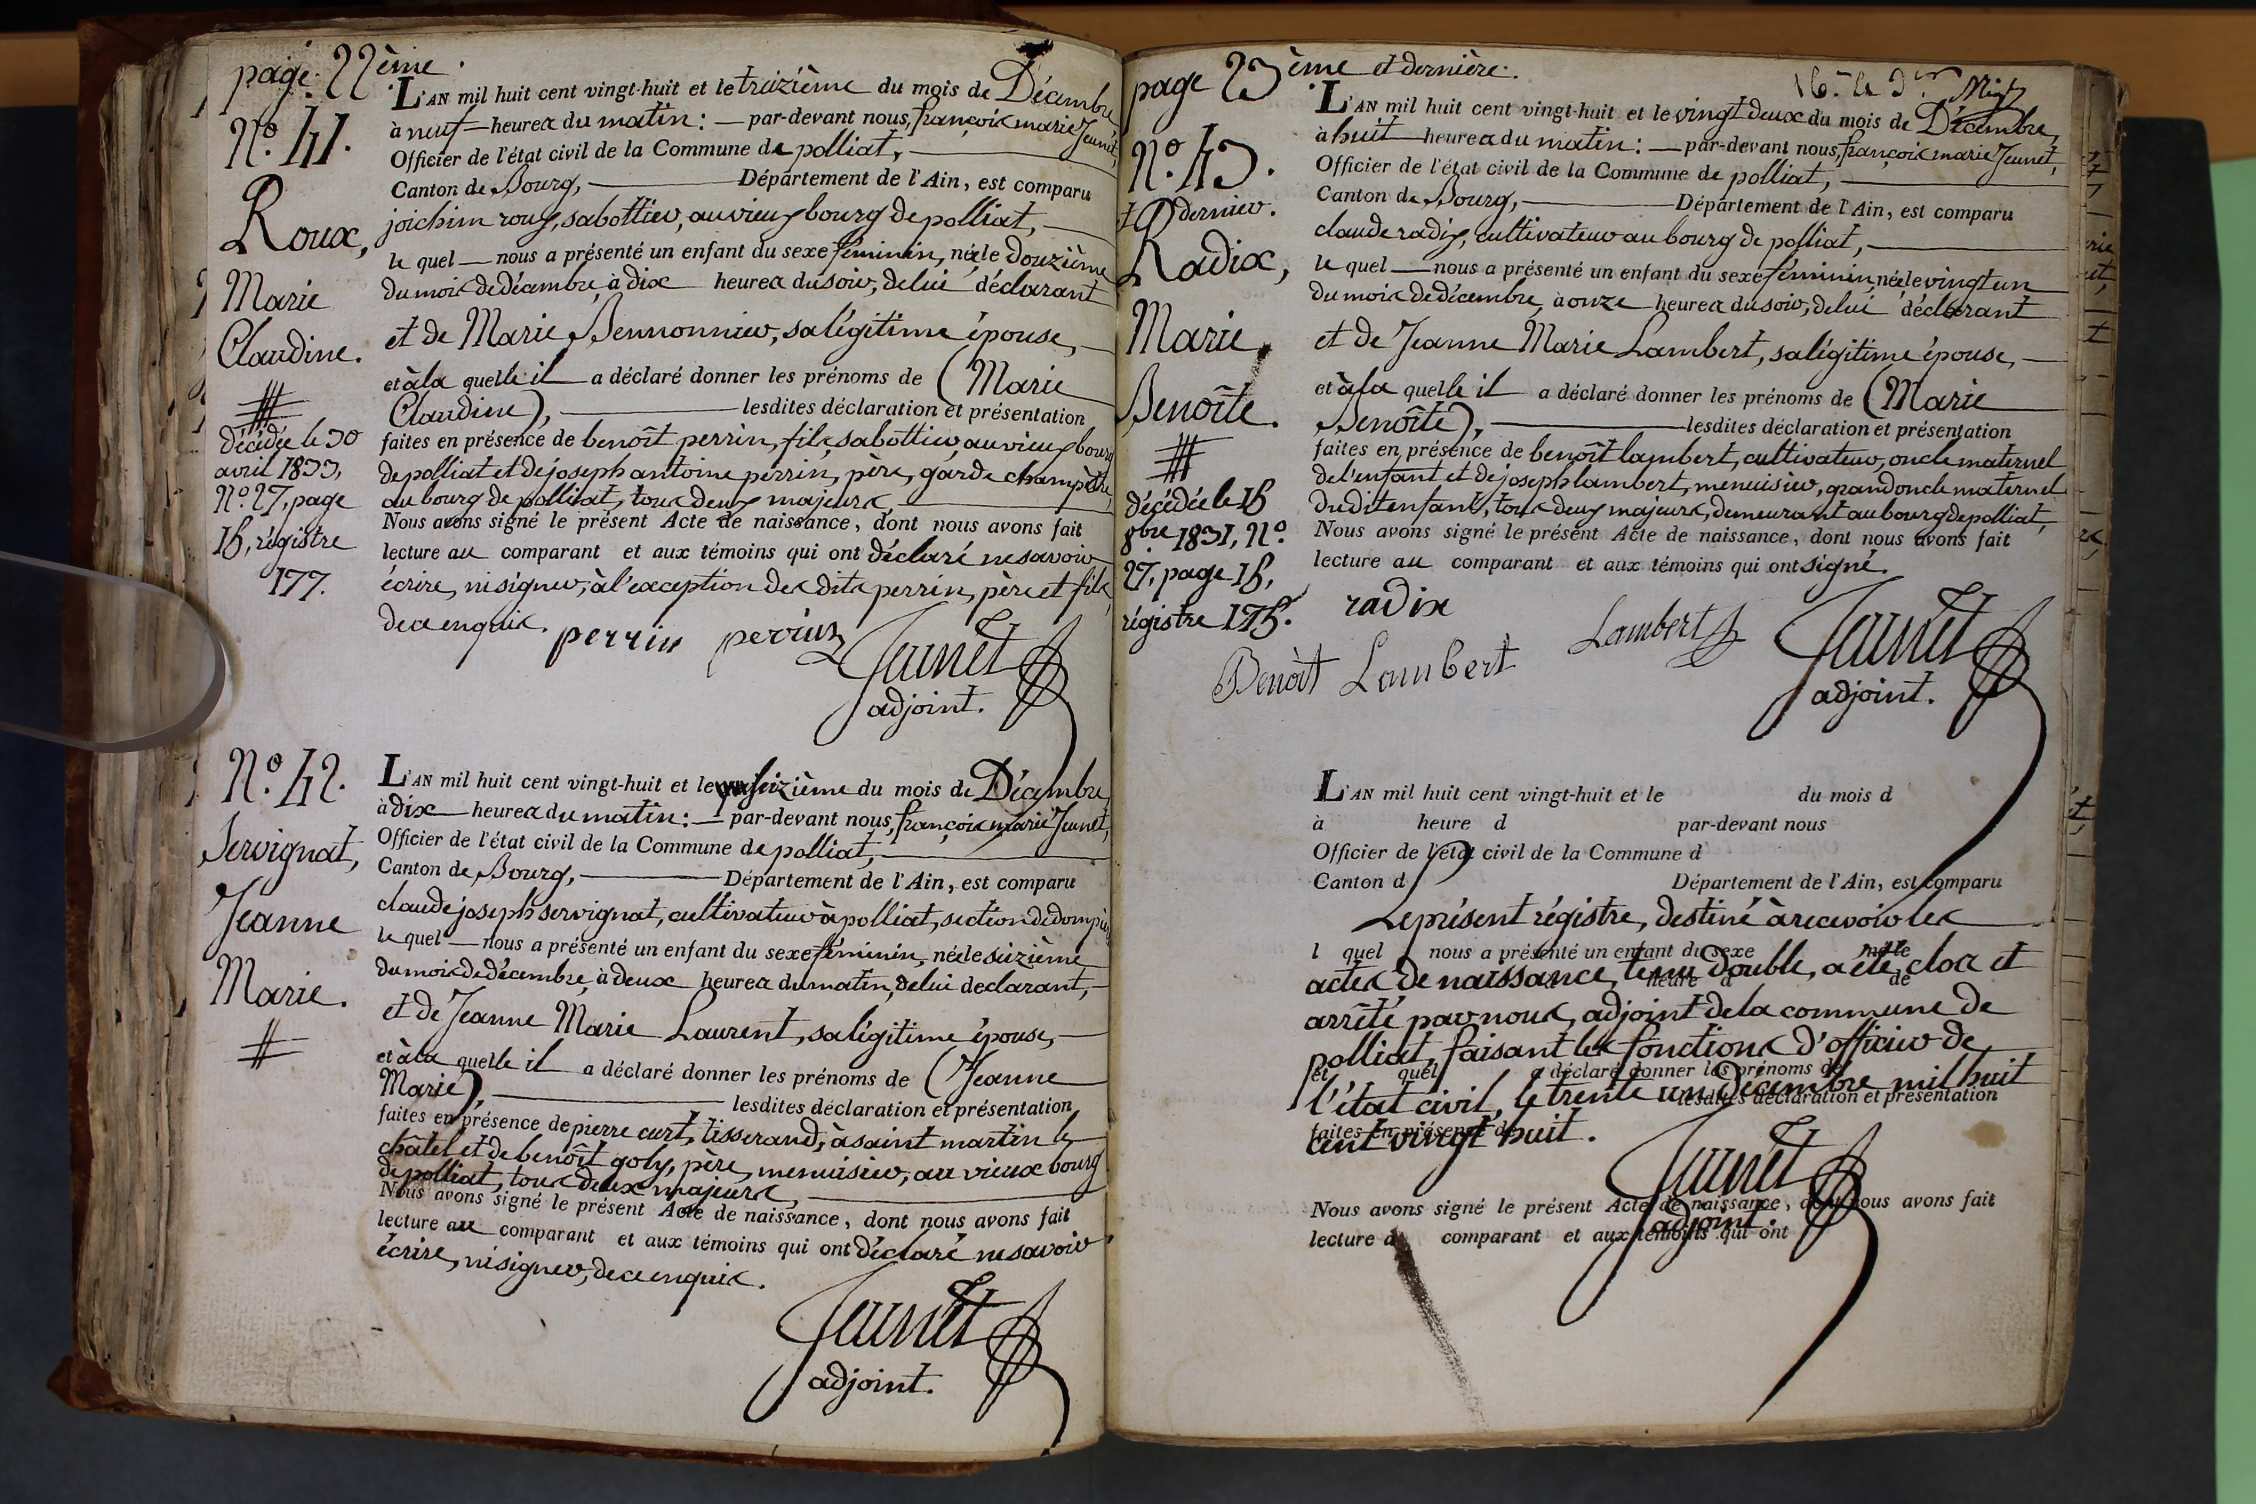 page 22ème.
N.º 41.
Roux,
Marie
Claudine.
décédée le 30
avril 1833,
N.º 27, page
15, régistre
177.
L'AN mil huit cent vingt-huit et le treizième du mois de Décembre
à neuf heures du matin: par-devant nous, françois marie Jeunet,
Officier de l'état civil de la Commune de polliat,
Canton de Bourg, Département de l'Ain, est comparu
joichim roux, sabottier, au vieux bourg de polliat,
le quel nous a présenté un enfant du sexe féminin, née le douzième
du mois de décembre, à dix heures du soir, de lui déclarant
et de Marie Bennonnier, sa légitime épouse,
et à la quelle il a déclaré donner les prénoms de (Marie
Claudine), lesdites déclaration et présentation
faites en présence de benoît perrin, fils, sabottier, au vieux bourg
de polliat et de joseph antoine perrin, père, garde champêtre,
au bourg de polliat, tous deux majeurs,
Nous avons signé le présent Acte de naissance, dont nous avons fait
lecture au comparant et aux témoins qui ont déclaré ne savoir
écrire, ni signer, à l'exception des dits perrin, père et fils,
de ce enquis. perrin perrin Jeunet
adjoint.
N.º 42.
Servignat,
Jeanne
Marie.
L'AN mil huit cent vingt-huit et le seizième du mois de Décembre,
à dix heures du matin: par-devant nous, françois marie Jeunet,
Officier de l'état civil de la Commune de polliat,
Canton de Bourg, Département de l'Ain, est comparu
claude joseph servignat, cultivateur à polliat, section de
le quel nous a présenté un enfant du sexe féminin, née le sizième
du mois de décembre, à deux heures du matin, de lui declarant,
et de Jeanne Marie Laurent, sa légitime épouse,
et à la quelle il a déclaré donner les prénoms de (Jeanne
Marie), lesdites déclaration et présentation
faites en présence de pierre curt, tisserand, à saint martin le
châtel et de benoît goly, père, menuisier, au vieux bourg
de polliat, tous deux majeurs,
Nous avons signé le présent Acte de naissance, dont nous avons fait
lecture au comparant et aux témoins qui ont déclaré ne savoir
écrire, ni signer, de ce enquis.
Jeunet
adjoint.
page 23ème et dernière.
N.º 43.
et dernier.
Radix,
Marie
Benoîte.
décédée le 15
8bre 1831, N.º
27, page 15,
régistre 175.
L'AN mil huit cent vingt-huit et le vingt deux du mois de Décembre,
à huit heures du matin: par-devant nous, françois marie Jeunet,
Officier de l'état civil de la Commune de polliat,
Canton de Bourg, Département de l'Ain, est comparu
claude radix, cultivateur au bourg de polliat,
le quel nous a présenté un enfant du sexe féminin, née le vingt un
du mois de décembre, à onze heures du soir, de lui déclarant
et de Jeanne Marie Lambert, sa légitime épouse,
et à la quelle il a déclaré donner les prénoms de (Marie
Benoîte), lesdites déclaration et présentation
faites en présence de benoît lambert, cultivateur, oncle maternel
de l'enfant et de joseph lambert, menuisier, grand oncle maternel
du dit enfant, tous deux majeurs, demeurant au bourg de polliat,
Nous avons signé le présent Acte de naissance, dont nous avons fait
lecture au comparant et aux témoins qui ont signé.
radix
Benoît Lambert Lambert Jeunet
adjoint.
L'AN mil huit cent vingt-huit et le du mois d
à heure d par-devant nous
Officier de l'état civil de la Commune d
Canton d Département de l'Ain, est comparu
Le présent régistre, destiné à recevoir les
l quel nous a présenté un enfant du sexe né le
actes de naissance, tenu double, a été, clos et
heure d de
arrêté par nous, adjoint de la commune de
polliat, faisant les fonctions d'officier de
et quel a déclaré donner les prénoms de
l'état civil, le trente un décembre mil huit
lesdites déclaration et présentation
faites en présence de
cent vingt huit.
Jeunet
Nous avons signé le présent Acte de naissance, dont nous avons fait
adjoint.
lecture a comparant et aux témoins qui ont